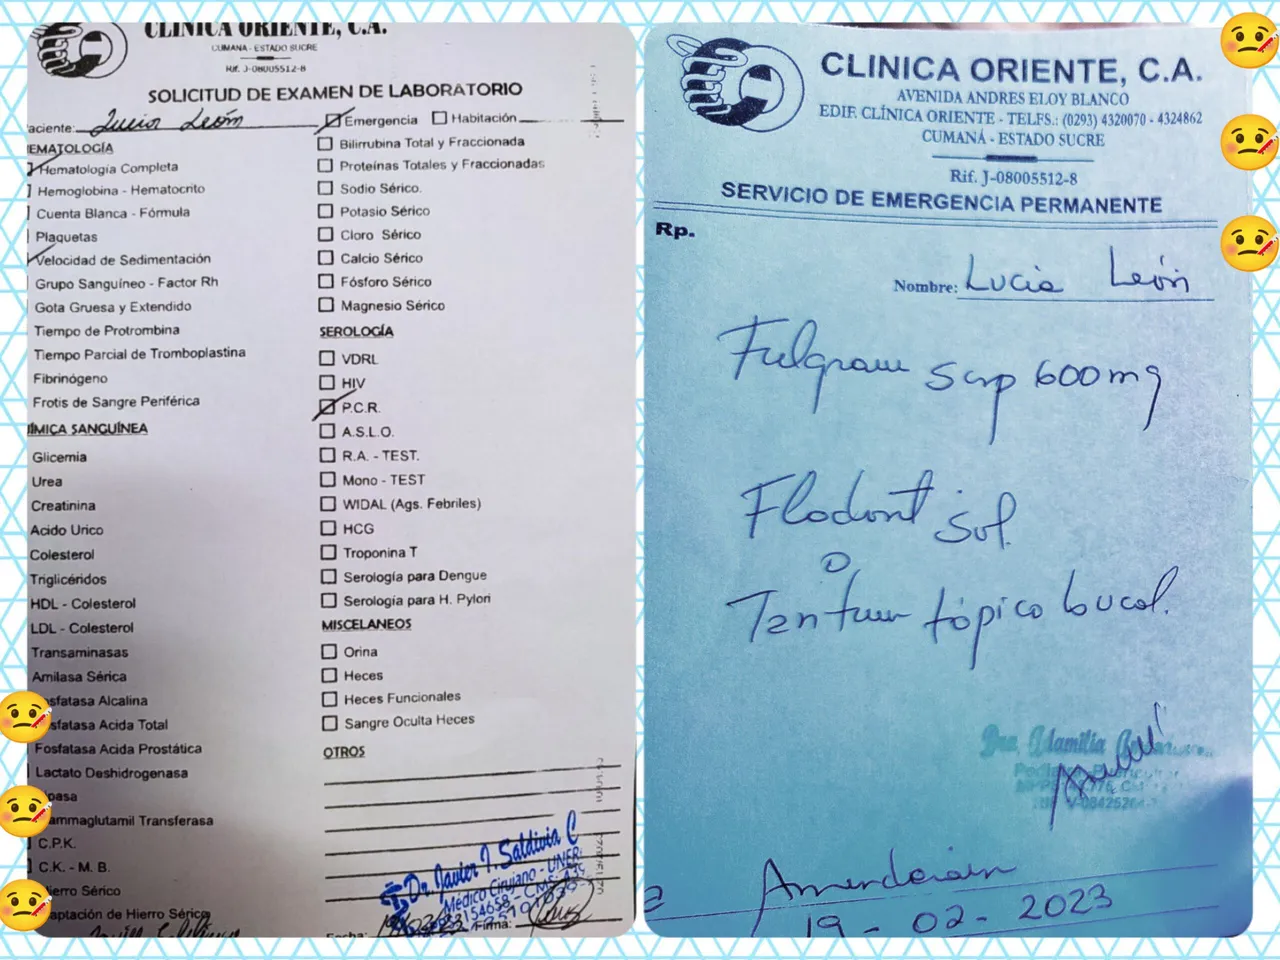 CLINICA ORIENTE, C.A.
CUMANA - ESTADO SUCRE
Rif. J-08005512-8
SOLICITUD DE EXAMEN DE LABORATORIO
aciente: Lucia León Emergencia Habitación
EMATOLOGÍA
Hematología Completa
Hemoglobina - Hematocrito
Cuenta Blanca - Fórmula
Plaquetas
Velocidad de Sedimentación
Grupo Sanguíneo - Factor Rh
Gota Gruesa y Extendido
Tiempo de Protrombina
Tiempo Parcial de Tromboplastina
Fibrinógeno
Frotis de Sangre Periférica
ÍMICA SANGUÍNEA
Glicemia
Urea
Creatinina
Acido Urico
Colesterol
Triglicéridos
HDL - Colesterol
LDL - Colesterol
Transaminasas
Amilasa Sérica
osfatasa Alcalina
osfatasa Acida Total
Fosfatasa Acida Prostática
Lactato Deshidrogenasa
ipasa
ammaglutamil Transferasa
C.P.K.
C.K. - M. B.
ierro Sérico
aptación de Hierro Sérico
Bilirrubina Total y Fraccionada
Proteínas Totales y Fraccionadas
Sodio Sérico.
Potasio Sérico
Cloro Sérico
Calcio Sérico
Fósforo Sérico
Magnesio Sérico
SEROLOGÍA
VDRL
HIV
P.C.R.
A.S.L.O.
R.A. - TEST.
Mono - TEST
WIDAL (Ags. Febriles)
HCG
Troponina T
Serología para Dengue
Serología para H. Pylori
MISCELANEOS
Orina
Heces
Heces Funcionales
Sangre Oculta Heces
OTROS
Dr. Javier I. Saldivia C
Médico Cirujano - UNER
Fecha: Firma:
CLINICA ORIENTE, C.A.
AVENIDA ANDRES ELOY BLANCO
EDIF. CLÍNICA ORIENTE - TELFS.: (0293) 4320070 - 4324862
CUMANÁ - ESTADO SUCRE
Rif. J-08005512-8
SERVICIO DE EMERGENCIA PERMANENTE
Rp.
Nombre: Lucia León
Fulgram susp 600mg
Flodont sol.
o
Tantum tópico bucal.
19 - 02 - 2023